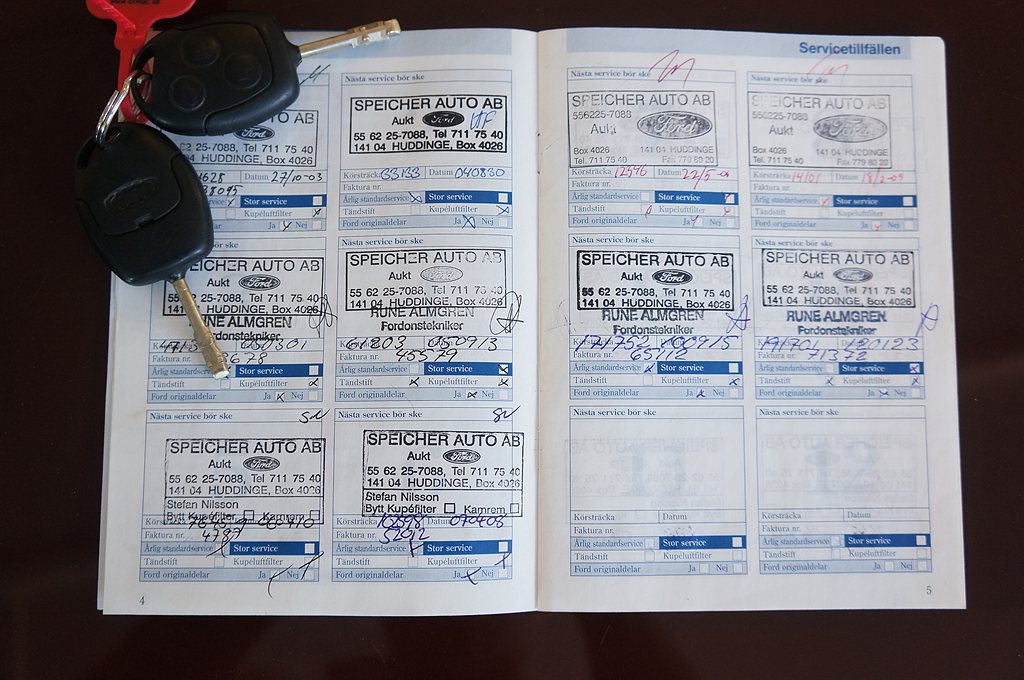 Servicetillfällen
SPEICHER AUTO AB
Ford
Tel 711 75 40
141 04 HUDDINGE, Box 4026
Datum 27/10-03
Stor service
Kupéluftfilter
Ja Nej
Nästa service bör ske
SPEICHER AUTO AB
Aukt Ford
55 62 25-7088, Tel 711 75 40
141 04 HUDDINGE, Box 4026
Körsträcka 33133 Datum 040830
Faktura nr.
Årlig standardservice Stor service
Tändstift Kupéluftfilter
Ford originaldelar Ja Nej
bör ske
SPEICHER AUTO AB
Aukt Ford
55 62 25-7088, Tel 711 75 40
141 04 HUDDINGE, Box 4026
RUNE ALMGREN
Fordonstekniker
051301
Faktura nr.
Årlig standardservice Stor service
Tändstift Kupéluftfilter
Ford originaldelar Ja Nej
Nästa service bör ske
SPEICHER AUTO AB
Aukt Ford
55 62 25-7088, Tel 711 75 40
141 04 HUDDINGE, Box 4026
RUNE ALMGREN
Fordonstekniker
61803
Faktura nr. 45579
Årlig standardservice Stor service
Tändstift Kupéluftfilter
Ford originaldelar Ja Nej
Nästa service bör ske
SPEICHER AUTO AB
Aukt Ford
55 62 25-7088, Tel 711 75 40
141 04 HUDDINGE, Box 4026
Stefan Nilsson
Bytt Kupéfilter Kamrem
Körsträcka
Faktura nr.
Årlig standardservice Stor service
Tändstift Kupéluftfilter
Ford originaldelar Ja Nej
Nästa service bör ske
SPEICHER AUTO AB
Aukt Ford
55 62 25-7088, Tel 711 75 40
141 04 HUDDINGE, Box 4026
Stefan Nilsson
Bytt Kupéfilter Kamrem
Körsträcka Datum
Faktura nr. 52012
Årlig standardservice Stor service
Tändstift Kupéluftfilter
Ford originaldelar Ja Nej
4
Nästa service bör ske
SPEICHER AUTO AB
556225-7088
Aukt Ford
Box 4026 141 04 HUDDINGE
Tel. 711 75 40 Fax 779 80 20
Körsträcka 12546 Datum 22/5-09
Faktura nr.
Årlig standardservice Stor service
Tändstift Kupéluftfilter
Ford originaldelar Ja Nej
Nästa service bör ske
SPEICHER AUTO AB
556225-7088
Aukt Ford
Box 4026 141 04 HUDDINGE
Tel. 711 75 40 Fax 779 80 20
Körsträcka Datum
Faktura nr.
Årlig standardservice Stor service
Tändstift Kupéluftfilter
Ford originaldelar Ja Nej
Nästa service bör ske
SPEICHER AUTO AB
Aukt Ford
55 62 25-7088, Tel 711 75 40
141 04 HUDDINGE, Box 4026
RUNE ALMGREN
Fordonstekniker
171752 100915
Faktura nr. 65112
Årlig standardservice Stor service
Tändstift Kupéluftfilter
Ford originaldelar Ja Nej
Nästa service bör ske
SPEICHER AUTO AB
Aukt Ford
55 62 25-7088, Tel 711 75 40
141 04 HUDDINGE, Box 4026
RUNE ALMGREN
Fordonstekniker
191701 120123
Faktura nr. 71372
Årlig standardservice Stor service
Tändstift Kupéluftfilter
Ford originaldelar Ja Nej
Nästa service bör ske
Körsträcka Datum
Faktura nr.
Årlig standardservice Stor service
Tändstift Kupéluftfilter
Ford originaldelar Ja Nej
Nästa service bör ske
Körsträcka Datum
Faktura nr.
Årlig standardservice Stor service
Tändstift Kupéluftfilter
Ford originaldelar Ja Nej
5